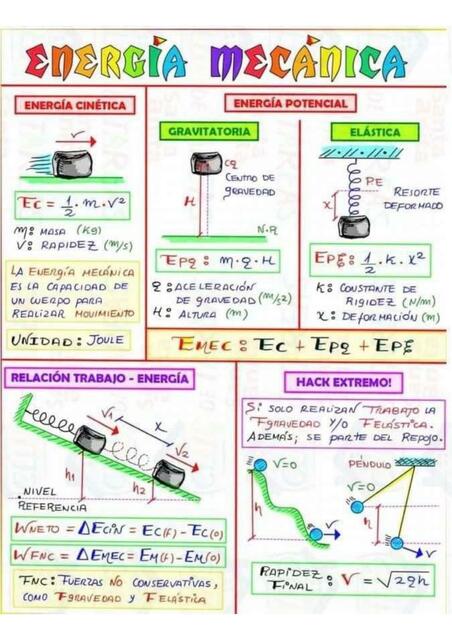 ENERGÍA MECÁNICA
ENERGÍA CINÉTICA
v
Ec = 1/2 · m · v²
m: MASA (Kg)
v: RAPIDEZ (m/s)
LA ENERGÍA MECÁNICA
ES LA CAPACIDAD DE
UN CUERPO PARA
REALIZAR MOVIMIENTO
UNIDAD: JOULE
ENERGÍA POTENCIAL
GRAVITATORIA
CG
CENTRO DE
GRAVEDAD
H
N.R
Epg: m·g·H
g: ACELERACIÓN
DE GRAVEDAD (m/s2)
H: ALTURA (m)
ELÁSTICA
PE
RESORTE
DEFORMADO
x
EpE: 1/2 · K · x²
K: CONSTANTE DE
RIGIDEZ (N/m)
x: DEFORMACIÓN (m)
EMEC: Ec + Epg + EpE
RELACIÓN TRABAJO - ENERGÍA
v1
x
v2
h1
h2
NIVEL
REFERENCIA
WNETO = ΔECIN = EC(F) - EC(0)
WFNC = ΔEMEC = EM(F) - EM(0)
FNC: FUERZAS NO CONSERVATIVAS,
COMO FGRAVEDAD Y FELÁSTICA
HACK EXTREMO!
Si SOLO REALIZAN TRABAJO LA
FGRAVEDAD Y/O FELÁSTICA.
ADEMÁS; SE PARTE DEL REPOJO.
v=0
h
v
PÉNDULO
v=0
h
v
RAPIDEZ
FINAL: v = √2gh